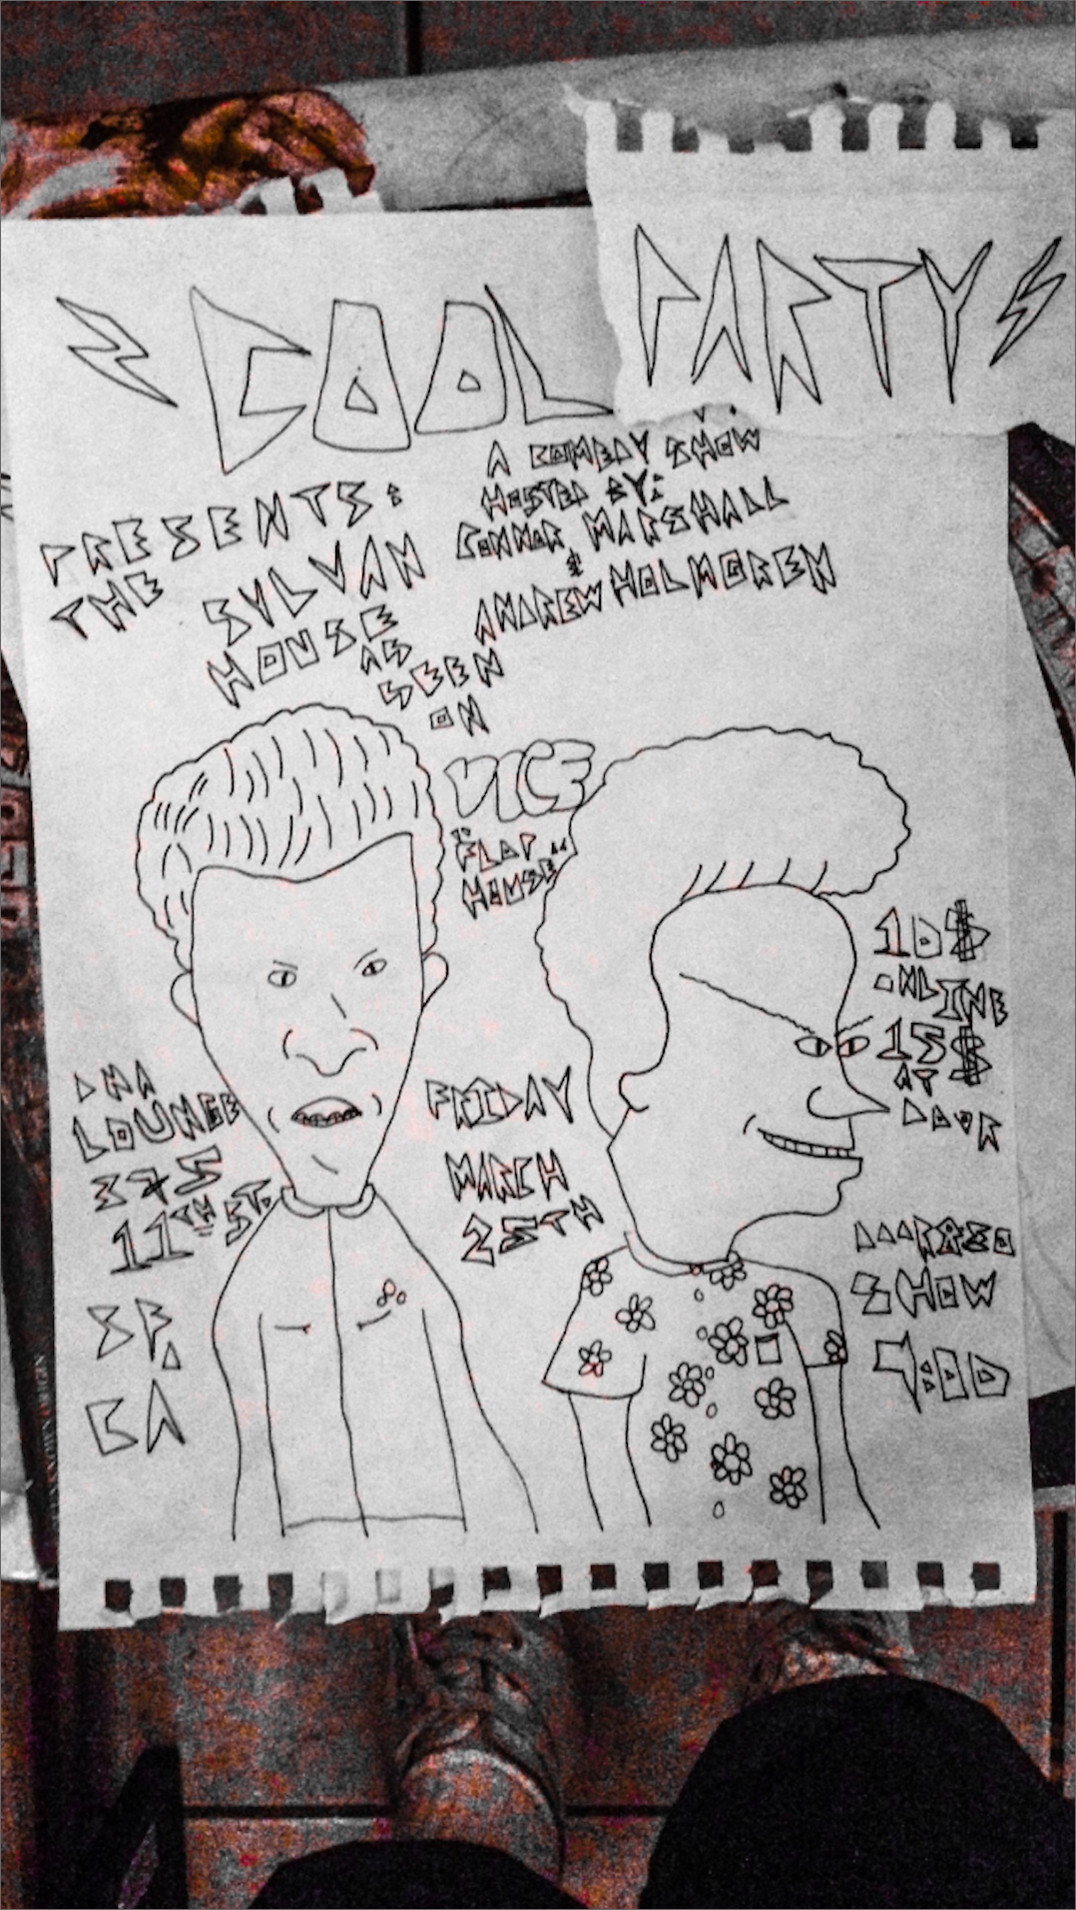 COOL PARTY
PRESENTS:
THE
SYLVAN
HOUSE
AS
SEEN
ON
VICE
IS
FLOP
HOUSE
A COMEDY SHOW
HOSTED BY:
CONNOR MARSHALL
&
ANDREW HOLMGREN
10$
ONLINE
15$
AT
DOOR
DNA
LOUNGE
375
11TH ST.
SF,
CA
FRIDAY
MARCH
25TH
DOOR 8:30
SHOW
9:00